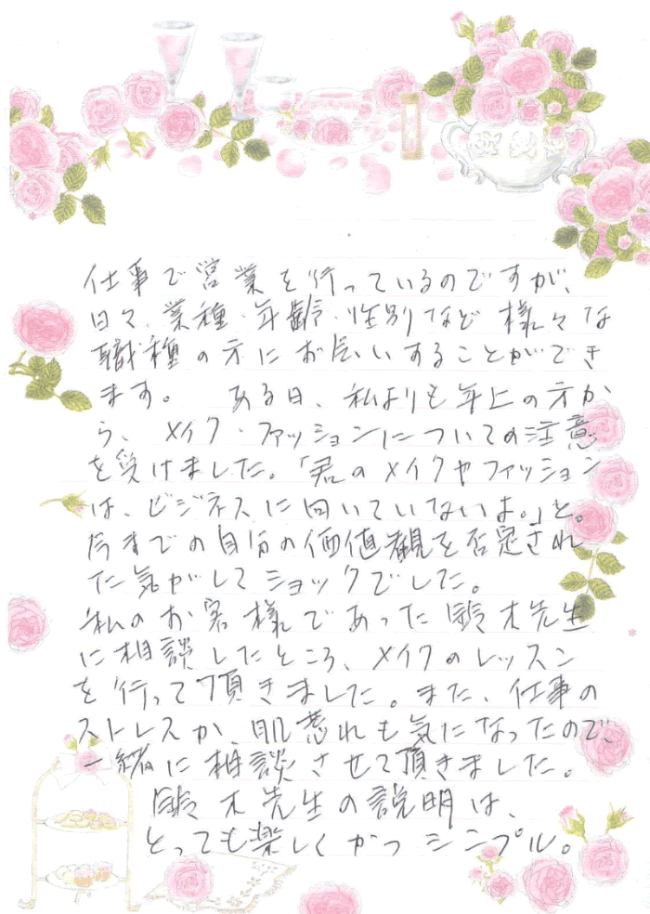 仕事で営業を行っているのですが、
日々、業種・年齢・性別など様々な
職種の方にお会いすることができ
ます。 ある日、私よりも年上の方か
ら、メイク・ファッションについての注意
を受けました。「君のメイクやファッション
は、ビジネスに向いていないよ。」と。
今までの自分の価値観を否定され
た気がしてショックでした。
私のお客様であった鈴木先生
に相談したところ、メイクのレッスン
を行って頂きました。また、仕事の
ストレスか、肌荒れも気になったので、
一緒に相談させて頂きました。
鈴木先生の説明は、
とっても楽しくかつシンプル。